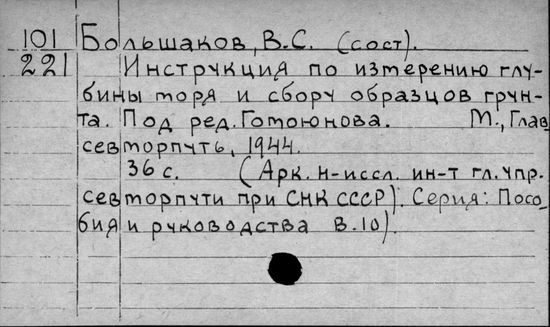 101 Большаков, В.С. (сост).
221 Инструкция по измерению глу-
бины моря и сбору образцов грун-
та. Под ред. Готоюнова. М., Глав
севморпуть, 1944.
36 с. (Арк. н-иссл. ин-т гл. упр.
севморпути при СНК СССР). Серия: Посо-
бия и руководства В.10).